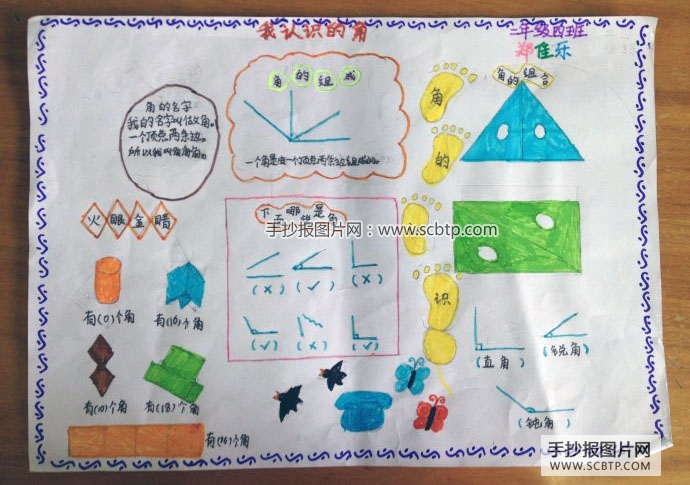 我认识的角
二年级四班
郑佳乐
角的名字
我的名字叫做角。
一个顶点两条边。
所以我叫
角的组成
一个角是由一个顶点两条边组成的。
角
的
识
角的组合
火眼金睛
下面哪些是角
手抄报图片网：www.scbtp.com
(×) (√) (×)
(√) (×) (√)
有(0)个角
有(10)个角
有(10)个角
有(18)个角
有(16)个角
(直角)
(锐角)
(钝角)
手抄报图片网
WWW.SCBTP.COM